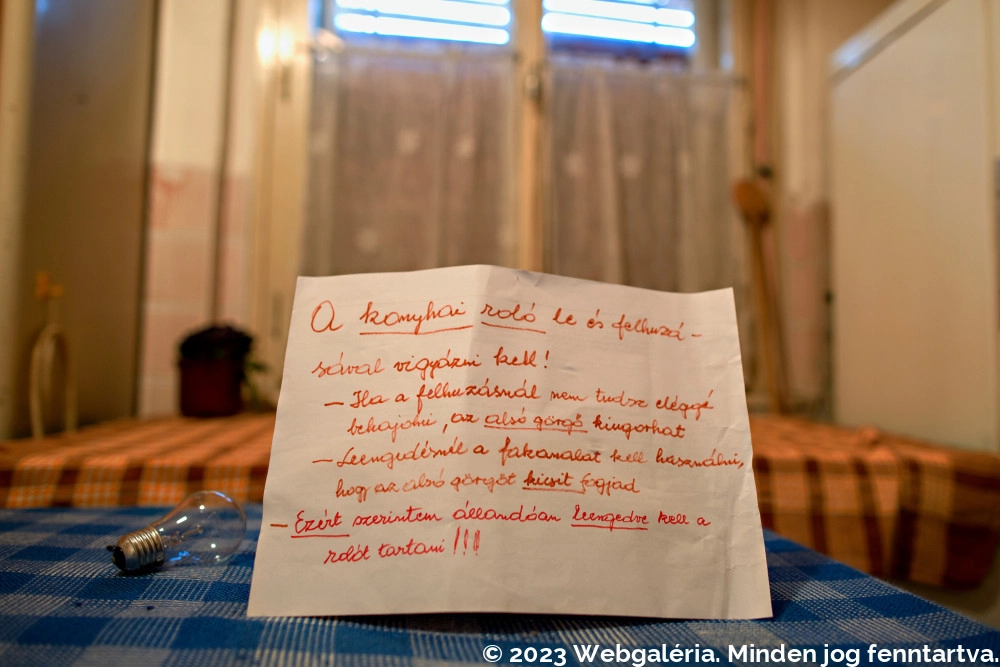 A konyhai roló le és felhuzá-
sával vigyázni kell!
- Ha a felhuzásnál nem tudsz eléggé
behajolni, az alsó görgő kiugorhat
- Leengedésnél a fakanalat kell használni,
hogy az alsó görgőt kicsit fogjad
- Ezért szerintem állandóan leengedve kell a
rolót tartani!!!
© 2023 Webgaléria. Minden jog fenntartva.